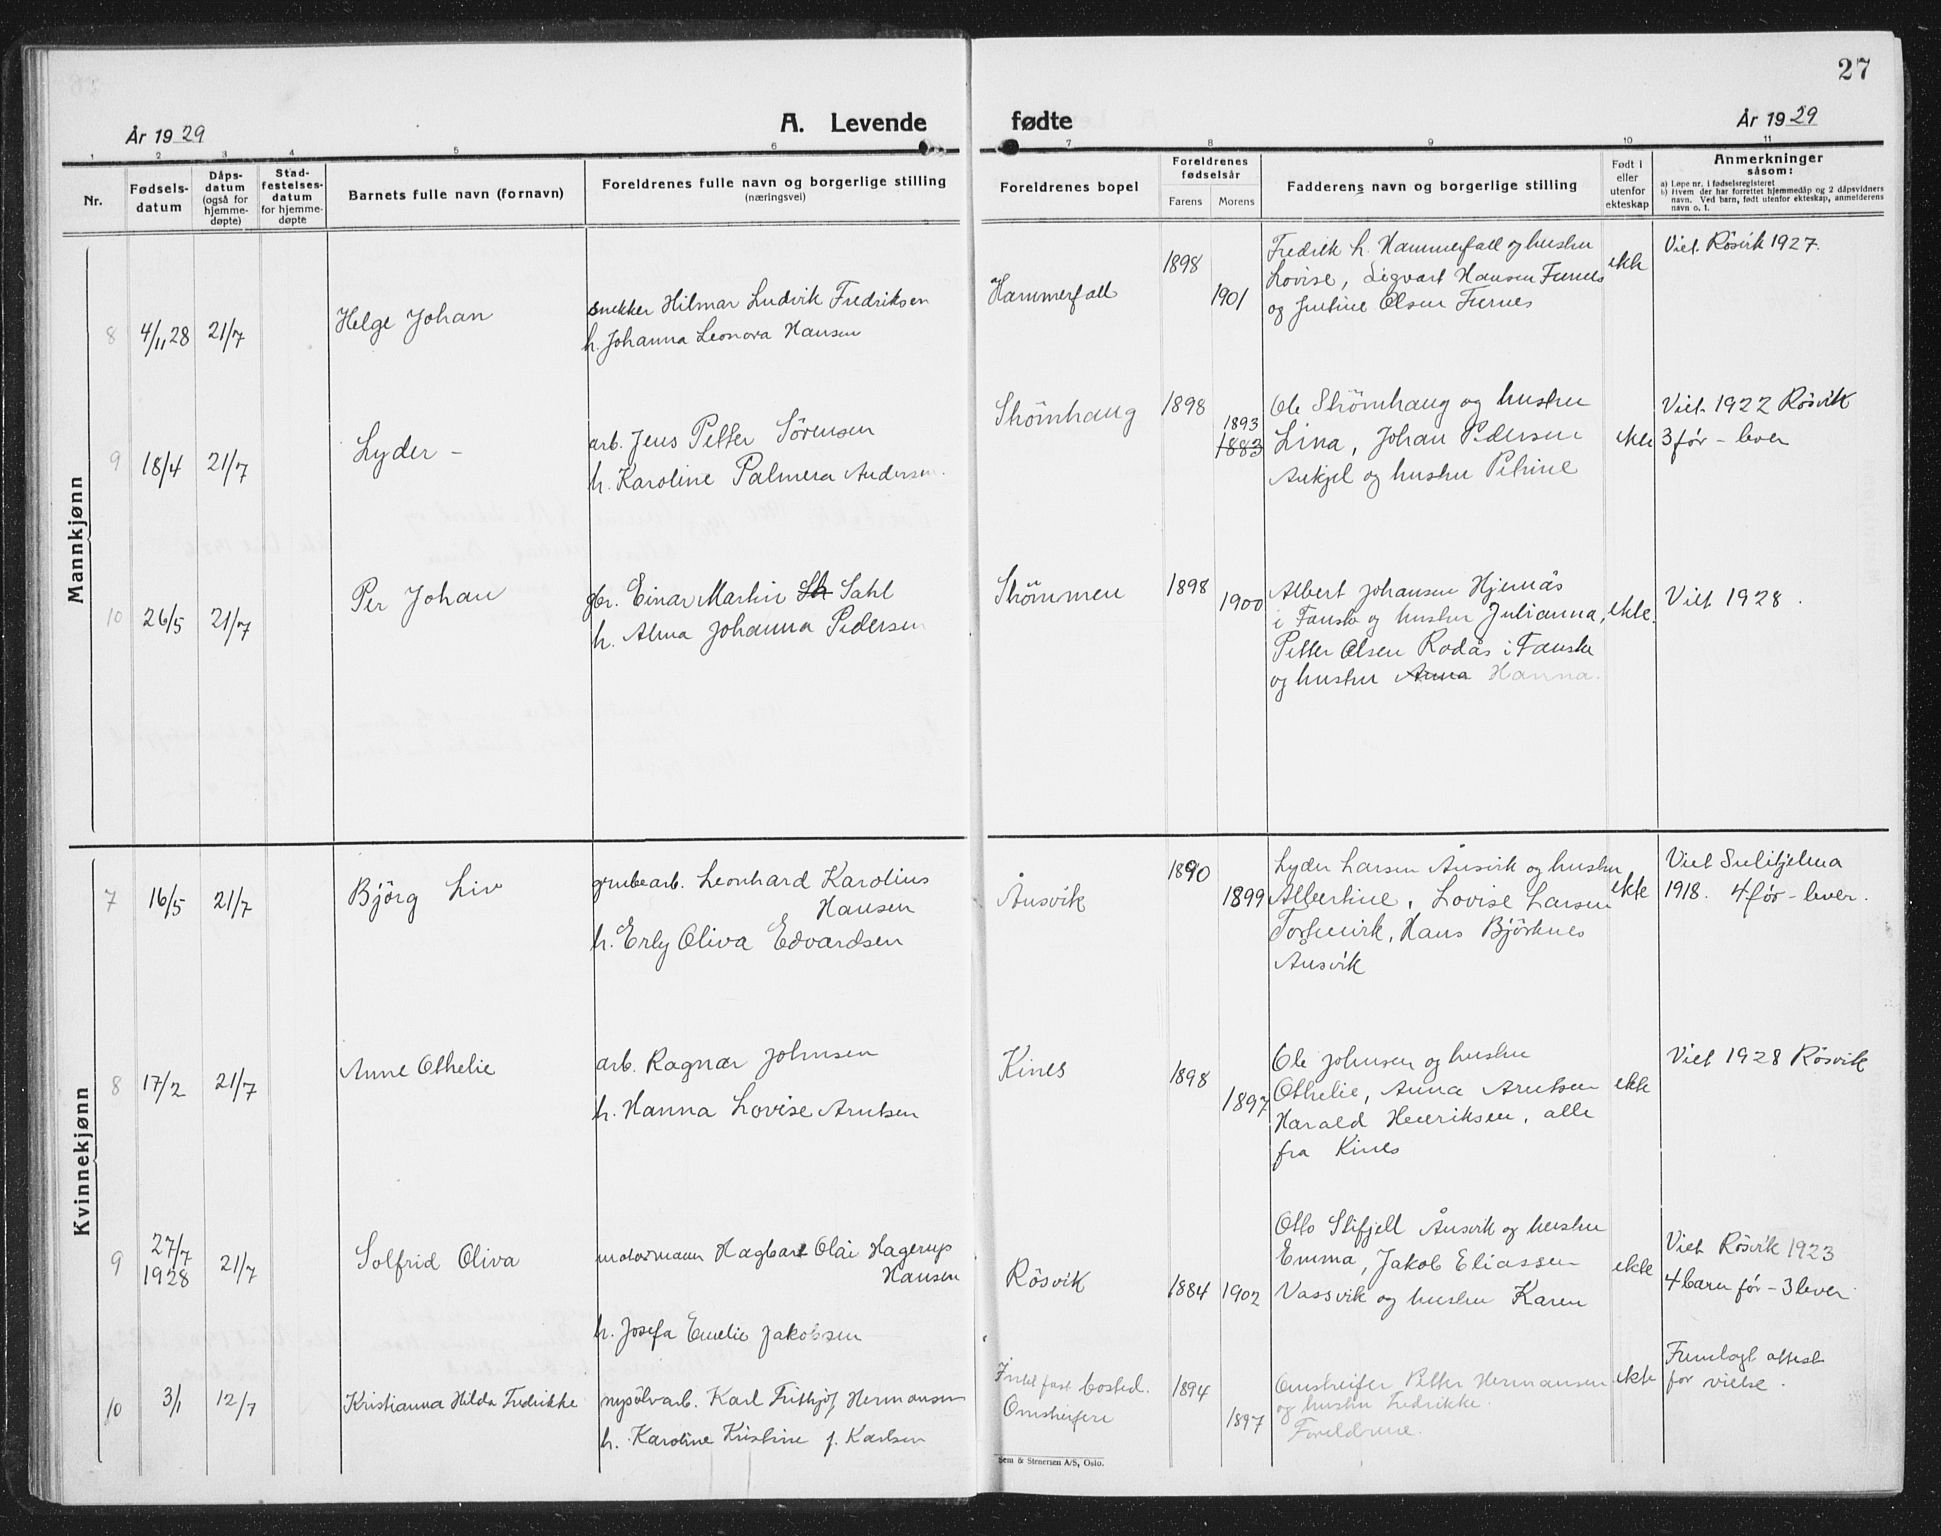 27
År 1929
A. Levende fødte
År 1929
1 2 3 4 5 6 7 8 9 10 11
Nr.
Fødsels-
datum
Dåps-
datum
(også for
hjemme-
døpte)
Stad-
festelses-
datum
for hjemme-
døpte
Barnets fulle navn (fornavn)
Foreldrenes fulle navn og borgerlige stilling
(næringsvei)
Foreldrenes bopel
Foreldrenes
fødselsår
Farens Morens
Fadderens navn og borgerlige stilling
Født i
eller
utenfor
ekteskap
Anmerkninger
såsom:
a) Løpe nr. i fødselsregisteret
b) Hvem der har forrettet hjemmedåp og 2 dåpsvidners
navn. Ved barn, født utenfor ekteskap, anmelderens
navn o. l.
Mannkjønn
8 4/11 28 21/7
Helge Johan
snekker Hilmar Ludvik Fredriksen
h. Johanna Leonora Hansen
Hammerfall
1898
1901
Fredrik h. Hammerfall og hustru
Lovise, Sigvart Hansen Furnes
og Justine Olsen Furnes
ekte
Viet. Rösvik 1927.
9 18/4 21/7
Lyder –
arb. Jens Petter Sörensen
h. Karoline Palmera Andersen.
Strömhaug
1898
1893
1883
Ole Strömhaug og hustru
Lina, Johan Pedersen
Aukjel og hustru Petrine
ekte
Viet. 1922 Rösvik
3 før – lever
10 26/5 21/7
Per Johan
gbr. Einar Martin St Sahl
h. Alma Johanna Pedersen
Strömmen
1898
1900
Albert Johansen Hjernås
i Fauske og hustru Julianna,
Petter Olsen Rodås i Fauske
og hustru Anna Hanna.
ekte.
Viet. 1928.
Kvinnekjønn
7 16/5 21/7
Björg Liv
grubearb. Leonhard Karolius
Hansen
h. Erly Oliva Edvardsen
Ånsvik
1890
1899
Lyder Larsen Ånsvik og hustru
Albertine, Lovise Larsen
Hans Björknes
Ånsvik
ekte
Viet Sulitjelma
1918. 4 før – lever.
8 17/2 21/7
Anne Othelie
arb. Ragnar Johnsen
h. Hanna Lovise Arntsen
Kines
1898
1897
Ole Johnsen og hustru
Othelie, Anna Arntsen
Harald Henriksen, alle
fra Kines
ekte
Viet 1928 Rösvik
9 27/7
1928 21/7
Solfrid Oliva
motormann Hagbart Olai Hagerup
Hansen
h. Josefa Emelie Jakobsen
Rösvik
1884 1902
Otto Stifjell Ånsvik og hustru
Emma, Jakob Eliassen
Vassvik og hustru Karen
ekte
Viet Rösvik 1923
4 barn før – 3 lever
10 3/1 12/7
Kristianna Hilda Fredrikke
nysölvarb. Karl Fritjof Hermansen
h. Karoline Kristine f. Karlsen
Intet fast bosted.
Omstreifere
1894
1897
Omstreifer Petter Hermansen
og hustru Fredrikke.
Foreldrene.
ekte
Fremlagt attest
for vielse.
Sem & Stenersen A/S, Oslo.